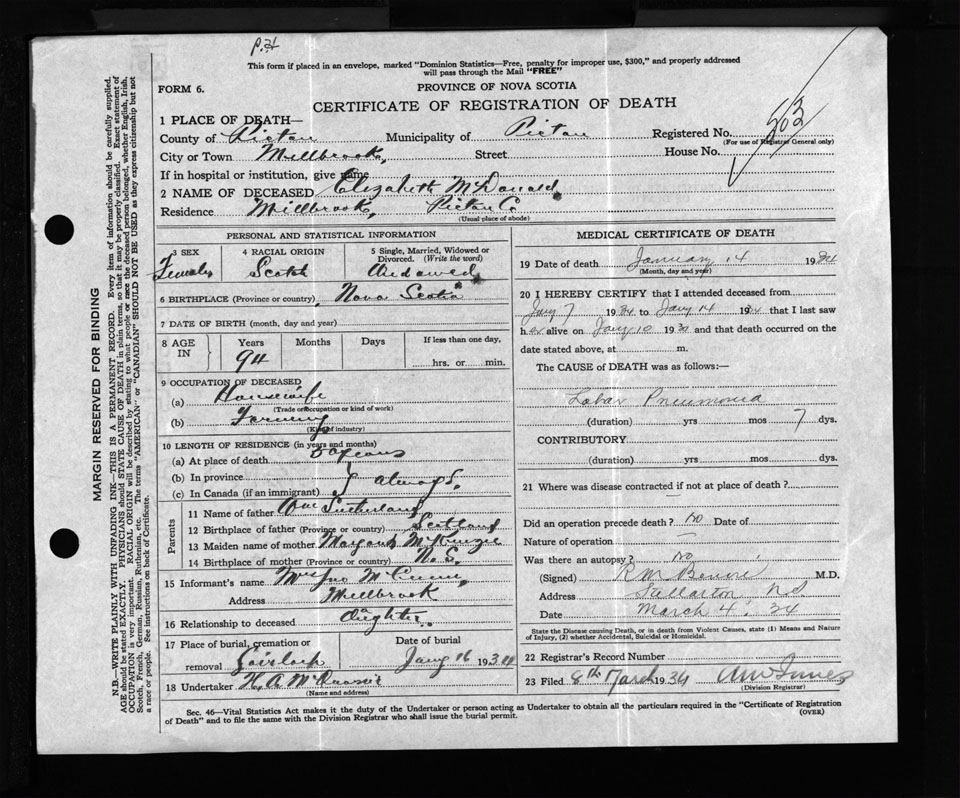 This form if placed in an envelope, marked "Dominion Statistics—Free, penalty for improper use, $300," and properly addressed
will pass through the Mail "FREE"
FORM 6.
PROVINCE OF NOVA SCOTIA
CERTIFICATE OF REGISTRATION OF DEATH
1 PLACE OF DEATH—
County of Pictou Municipality of Pictou Registered No.
(For use of Registrar General only)
City or Town Millbrook, Street House No.
If in hospital or institution, give name
2 NAME OF DECEASED Elizabeth McDonald
Residence Millbrook, Pictou Co
(Usual place of abode)
PERSONAL AND STATISTICAL INFORMATION
3 SEX 4 RACIAL ORIGIN 5 Single, Married, Widowed or Divorced. (Write the word)
Female Scotch Widowed
6 BIRTHPLACE (Province or country) Nova Scotia
7 DATE OF BIRTH (month, day and year)
8 AGE IN Years Months Days If less than one day, hrs. or min.
94
9 OCCUPATION OF DECEASED
(a) Housewife
(Trade or occupation or kind of work)
(b) Farming
(Kind of industry)
10 LENGTH OF RESIDENCE (in years and months)
(a) At place of death years
(b) In province
(c) In Canada (if an immigrant) always
Parents
11 Name of father Wm Sutherland
12 Birthplace of father (Province or country) Scotland
13 Maiden name of mother Margaret McKenzie
14 Birthplace of mother (Province or country) N. S.
15 Informant's name Mrs Jno
Address Millbrook
16 Relationship to deceased daughter
17 Place of burial, cremation or removal Gairloch Date of burial Jany 16 1934
18 Undertaker H. A.
(Name and address)
MEDICAL CERTIFICATE OF DEATH
19 Date of death January 14 1934
(Month, day and year)
20 I HEREBY CERTIFY that I attended deceased from
Jany 7 1934 to Jany 14 1934 that I last saw
her alive on Jany 10 193 and that death occurred on the
date stated above, at m.
The CAUSE of DEATH was as follows:—
Lobar Pneumonia
(duration) yrs mos 7 dys.
CONTRIBUTORY
(duration) yrs mos dys.
21 Where was disease contracted if not at place of death?
Did an operation precede death? No Date of
Nature of operation —
Was there an autopsy? No
(Signed) M.D.
Address Stellarton N S
Date March 4. 34
State the Disease causing Death, or in death from Violent Causes, state (1) Means and Nature
of Injury, (2) whether Accidental, Suicidal or Homicidal.
22 Registrar's Record Number
23 Filed 8th March 1934
(Division Registrar)
Sec. 46—Vital Statistics Act makes it the duty of the Undertaker or person acting as Undertaker to obtain all the particulars required in the "Certificate of Registration
of Death" and to file the same with the Division Registrar who shall issue the burial permit.
(OVER)
MARGIN RESERVED FOR BINDING
N.B.—WRITE PLAINLY WITH UNFADING INK—THIS IS A PERMANENT RECORD. Every item of information should be carefully supplied.
AGE should be stated EXACTLY. PHYSICIANS should STATE CAUSE OF DEATH in plain terms, so that it may be properly classified. Exact statement of
OCCUPATION is very important. RACIAL ORIGIN will be described by stating to what people or race the deceased person belonged, whether English, Irish,
Scotch, French, German, Russian, Ruthenian, etc. The terms "AMERICAN" or "CANADIAN" SHOULD NOT BE USED as they express citizenship but not
a race or people. See instructions on back of Certificate.